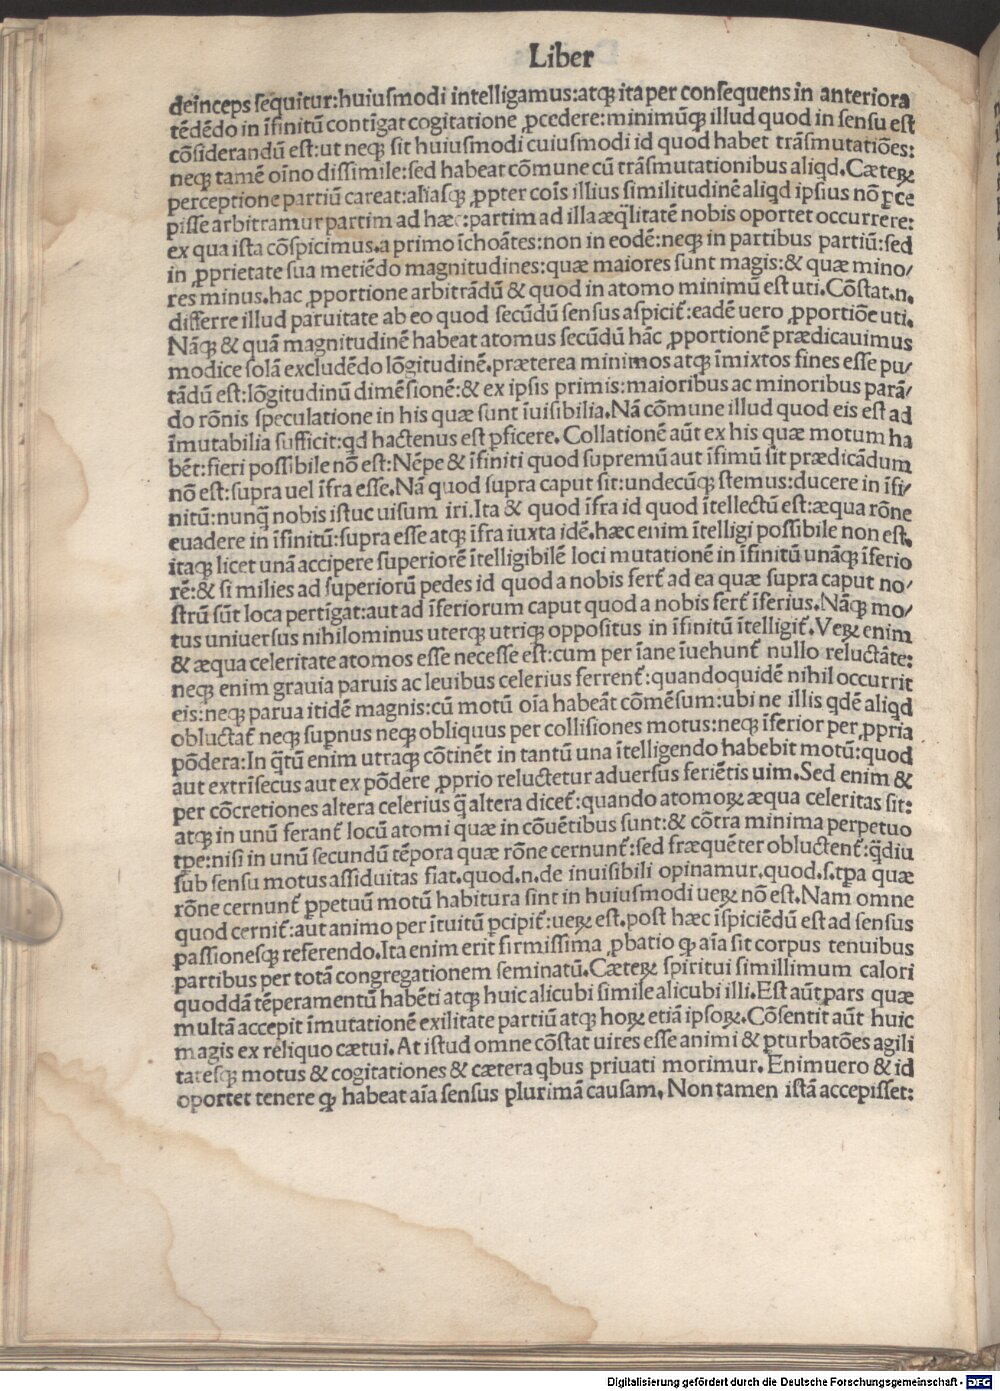 Liber
deinceps sequitur:huiusmodi intelligamus:atqꝫ ita per consequens in anteriora
tēdēdo in īfinitū contīgat cogitatione ꝓcedere:minimūqꝫ illud quod in sensu est
cōsiderandū est:ut neqꝫ sit huiusmodi cuiusmodi id quod habet trāsmutatiōes:
neqꝫ tamē oīno dissimile:sed habeat cōmune cū trāsmutationibus aliqd.Cæteꝝ
perceptione partiū careat:aliasqꝫ ꝓpter coīs illius similitudinē aliqd ipsius nō ꝑce
pisse arbitramur partim ad hæc:partim ad illa æq̄litatē nobis oportet occurrere:
ex qua ista cōspicimus.a primo īchoātes:non in eodē:neqꝫ in partibus partiū:sed
in ꝓprietate sua metiēdo magnitudines:quæ maiores sunt magis:& quæ mino/
res minus.hac ꝓportione arbitrādū & quod in atomo minimū est uti.Cōstat.n.
differre illud paruitate ab eo quod secūdū sensus aspicit̄:eadē uero ꝓportiōe uti.
Nāqꝫ & quā magnitudinē habeat atomus secūdū hāc ꝓportionē prædicauimus
modice solā excludēdo lōgitudinē.præterea minimos atqꝫ īmixtos fines esse pu/
tādū est:lōgitudinū dimēsionē:& ex ipsis primis:maioribus ac minoribus parā/
do rōnis speculatione in his quæ sunt īuisibilia.Nā cōmune illud quod eis est ad
īmutabilia sufficit:qd hactenus est ꝑficere. Collationē aūt ex his quæ motum ha
bēt:fieri possibile nō est:Nēpe & īfiniti quod supremū aut īfimū sit prædicādum
nō est:supra uel īfra esse.Nā quod supra caput sit:undecūqꝫ stemus:ducere in īfi/
nitū:nunq̄ nobis istuc uisum iri.Ita & quod īfra id quod ītellectū est:æqua rōne
euadere in īfinitū:supra esse atqꝫ īfra iuxta idē.hæc enim ītelligi possibile non est.
itaqꝫ licet unā accipere superiorē ītelligibilē loci mutationē in īfinitū unāqꝫ īferio
rē:& si milies ad superiorū pedes id quod a nobis fert̄ ad ea quæ supra caput no/
strū sūt loca pertīgat:aut ad īferiorum caput quod a nobis fert̄ īferius.Nāqꝫ mo/
tus uniuersus nihilominus uterqꝫ utriqꝫ oppositus in īfinitū ītelligit̄.Veꝝ enim
& æqua celeritate atomos esse necesse est:cum per īane īuehunt̄ nullo reluctāte:
neqꝫ enim grauia paruis ac leuibus celerius ferrent̄:quandoquidē nihil occurrit
eis:neqꝫ parua itidē magnis:cū motū oīa habeāt cōmēsum:ubi ne illis qdē aliqd
obluctat̄ neqꝫ supnus neqꝫ obliquus per collisiones motus:neqꝫ īferior per ꝓpria
pōdera:In q̄tū enim utraqꝫ cōtinēt in tantū una ītelligendo habebit motū:quod
aut extrīsecus aut ex pōdere ꝓprio reluctetur aduersus feriētis uim.Sed enim &
per cōcretiones altera celerius q̄ altera dicet̄:quando atomoꝝ æqua celeritas sit:
atqꝫ in unū ferant̄ locū atomi quæ in cōuētibus sunt:& cōtra minima perpetuo
tpe:nisi in unū secundū tēpora quæ rōne cernunt̄:sed fræquēter obluctent̄:q̄diu
sub sensu motus assiduitas fiat.quod.n.de inuisibili opinamur.quod.s.tpa quæ
rōne cernunt̄ ꝑpetuū motū habitura sint in huiusmodi ueꝝ nō est.Nam omne
quod cernit̄:aut animo per ītuitū ꝑcipit̄:ueꝝ est.post hæc īspiciēdū est ad sensus
passionesqꝫ referendo.Ita enim erit firmissima ꝓbatio qꝫ aīa sit corpus tenuibus
partibus per totā congregationem seminatū.Cæteꝝ spiritui simillimum calori
quoddā tēperamentū habēti atqꝫ huic alicubi simile alicubi illi.Est aūt pars quæ
multā accepit īmutationē exilitate partiū atqꝫ hoꝝ etiā ipsoꝝ.Cōsentit aūt huic
magis ex reliquo cætui. At istud omne cōstat uires esse animi & ꝑturbatōes agili
tatesqꝫ motus & cogitationes & cætera qbus priuati morimur. Enimuero & id
oportet tenere qꝫ habeat aīa sensus plurimā causam. Non tamen istā accepisset:
Digitalisierung gefördert durch die Deutsche Forschungsgemeinschaft - DFG